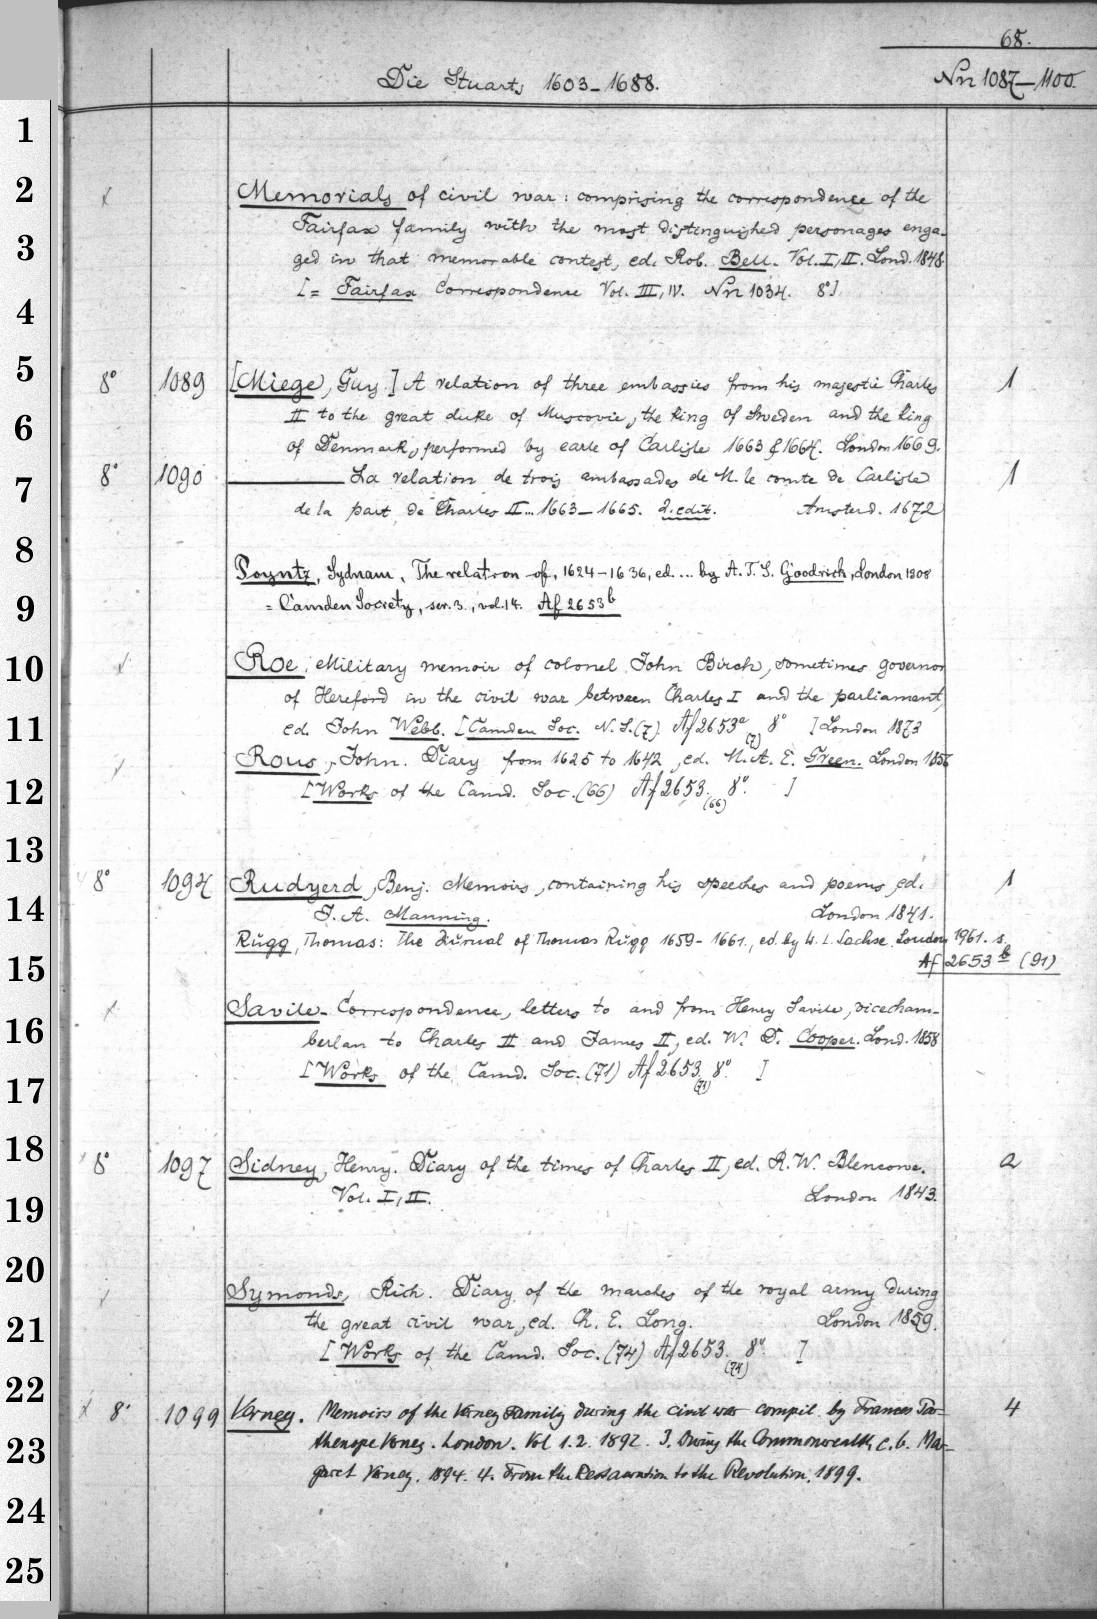 68.
Die Stuarts 1603–1688.
Nrn 1087–1100.
1
2
Memorials of civil war: comprising the correspondence of the
Fairfax family with the most distinguished personages enga-
3
ged in that memorable contest, ed. Rob. Bell. Vol. I, II. Lond. 1848.
4
[= Fairfax Correspondence Vol. III, IV. Nrn 1034. 8°].
5
8° 1089 [Miege, Guy.] A relation of three embassies from his majestie Charles 1
II to the great duke of Muscovie, the king of Sweden and the king
6
of Denmark, performed by earle of Carlisle 1663 & 1664. London 1669.
7
8° 1090 ——— La relation de trois ambassades de M. le comte de Carlisle 1
de la part de Charles II... 1663–1665. 2. edit. Amsterd. 1672
8
Poyntz, Sydnam, The relation of, 1624–1636, ed. ... by A. T. S. Goodrick, London 1908
9
= Camden Society, ser. 3., vol. 14. Af 2653b
10
Roe, Military memoir of colonel John Birch, sometimes governor
of Hereford in the civil war between Charles I and the parliament,
11
ed. John Webb. [Camden Soc. N. S. (7) Af 2653a (7) 8° ] London 1873
Rous, John. Diary from 1625 to 1642, ed. M. A. E. Green. London 1856
12
[Works of the Camd. Soc. (66) Af 2653. (66) 8°. ]
13
8° 1094 Rudyerd, Benj. Memoirs, containing his speeches and poems, ed. 1
14
J. A. Manning. London 1841.
Rugg, Thomas: The Diurnal of Thomas Rugg 1659–1661., ed. by W. L. Sachse. London 1961. s.
15
Af 2653 b (91)
Savile. Correspondence, letters to and from Henry Savile, vicecham-
16
berlan to Charles II and James II, ed. W. D. Cooper. Lond. 1858
[Works of the Camd. Soc. (71) Af 2653. (71) 8°. ]
17
18
8° 1097 Sidney, Henry. Diary of the times of Charles II, ed. R. W. Blencowe. 2
19
Vol. I, II. London 1843.
20
Symonds, Rich. Diary of the marches of the royal army during
21
the great civil war, ed. Ch. E. Long. London 1859.
[Works of the Camd. Soc. (74) Af 2653. (74) 8°. ]
22
8° 1099 Verney. Memoirs of the Verney Family during the civil war compil. by Frances Par- 4
23
thenope Verney. London. Vol 1. 2. 1892. 3. During the Commonwealth c. b. Mar-
garet Verney. 1894. 4. From the Restauration to the Revolution. 1899.
24
25